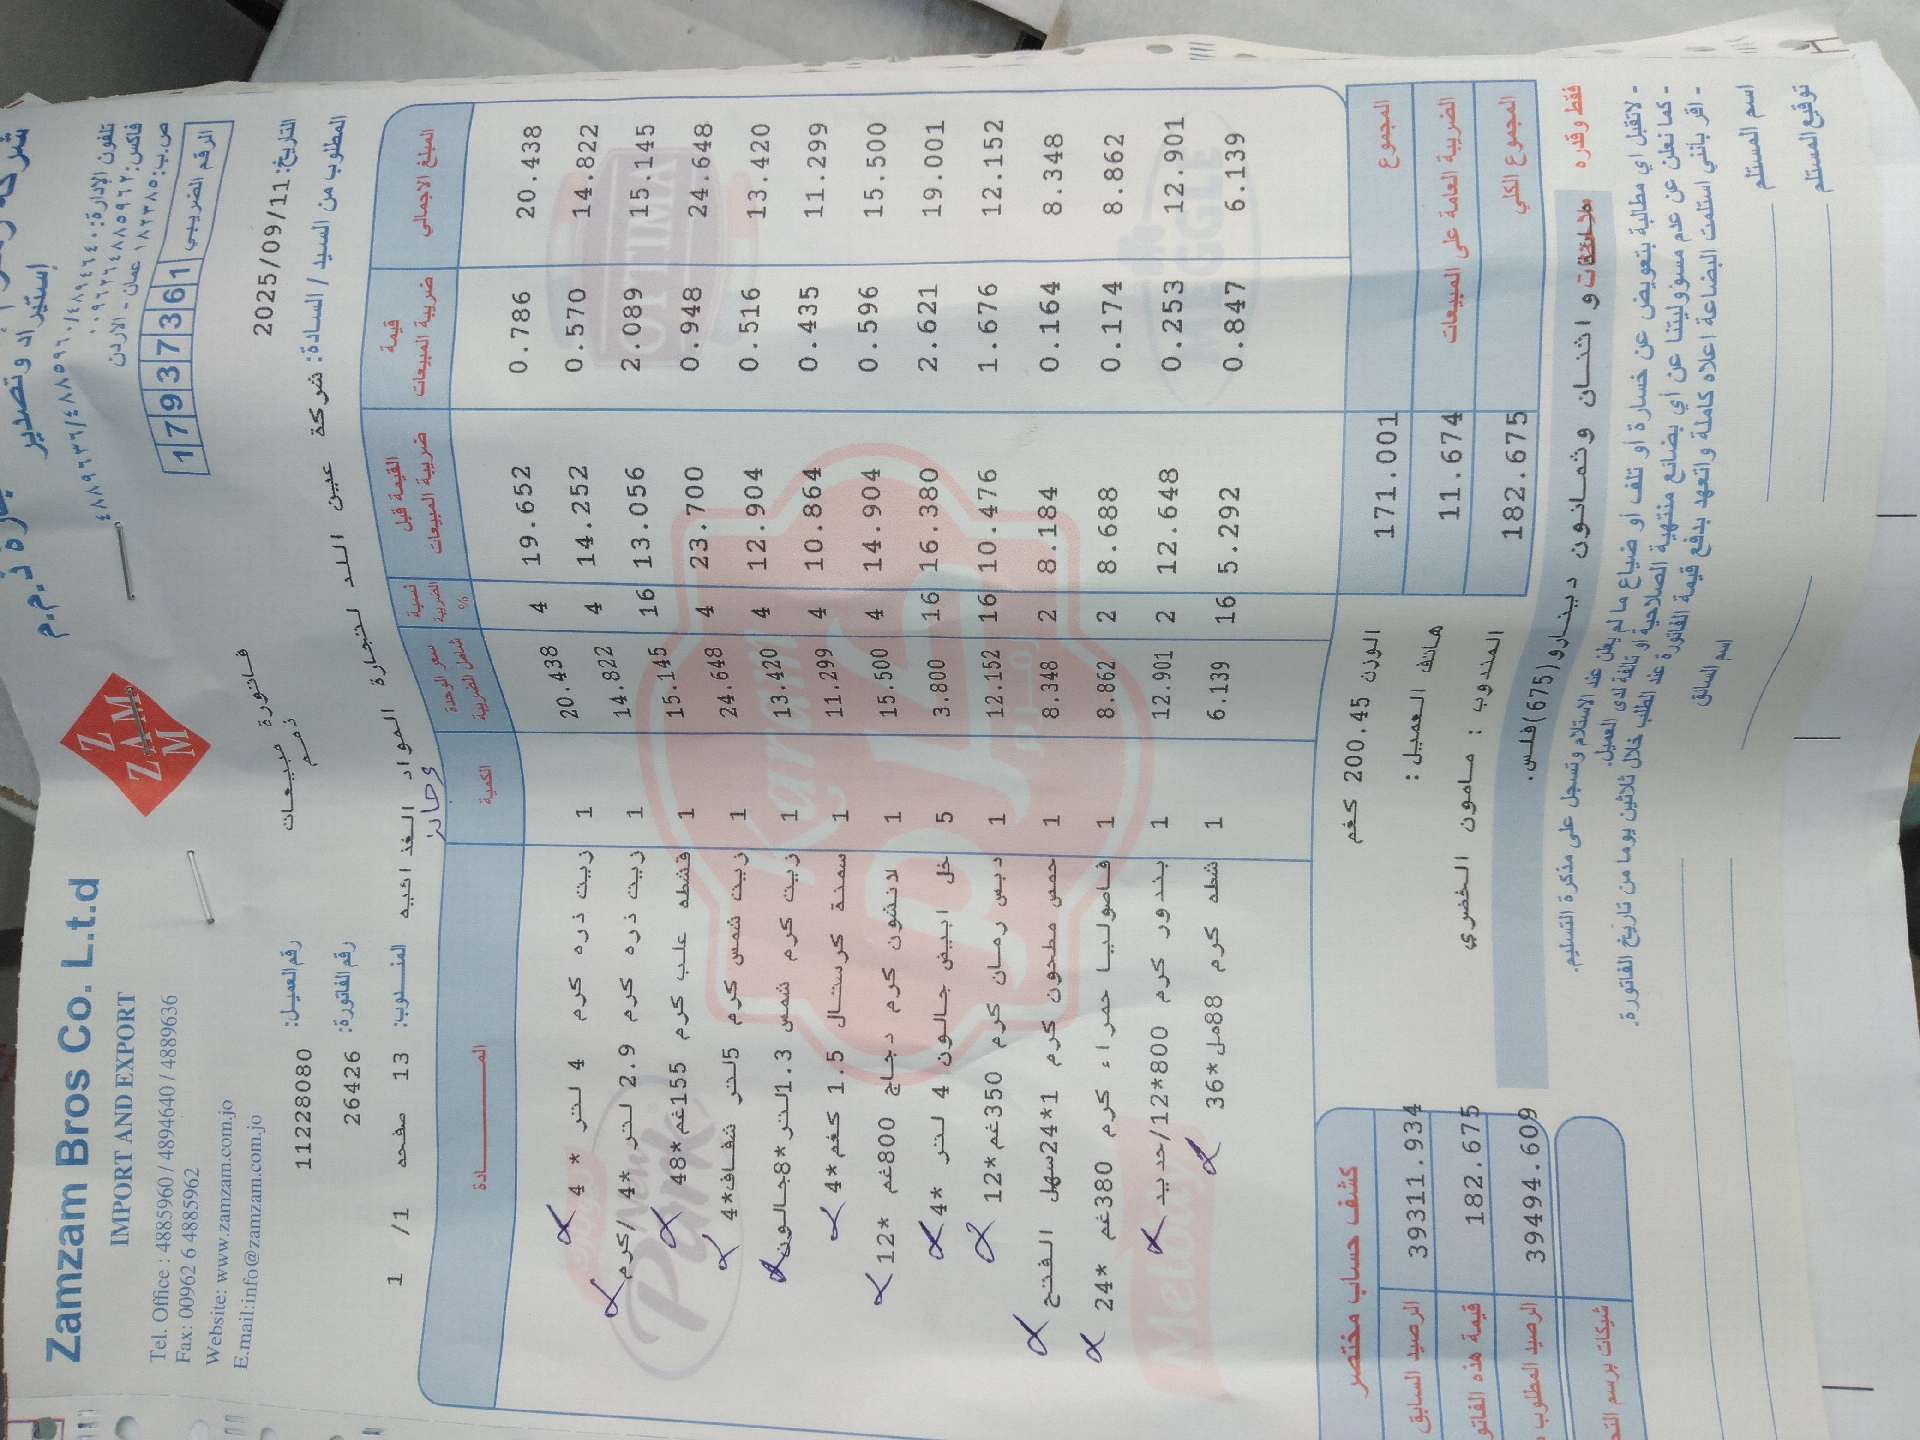 Zamzam Bros Co. L.t.d
IMPORT AND EXPORT
Tel. Office : 4885960 / 4894640 / 4889636
Fax: 00962 6 4885962
Website: www.zamzam.com.jo
E.mail:info@zamzam.com.jo
Z
ZAM
M
إستيراد وتصدير
تلفون الإدارة: ٤٨٨٩٦٣٦/٤٨٨٥٩٦٠/٤٨٩٤٦٤٠
فاكس: ٤٨٨٥٩٦٢ ٦ ٠٠٩٦٢
ص.ب: ١٨٢٣٨٥ عمان - الأردن
الرقم الضريبي 1793736 1
فاتورة مبيعات
ذمم
التاريخ: 2025/09/11
رقم العميل: 11228080
رقم الفاتورة: 26426
المطلوب من السيد / السادة: شركة عبين اللد لتجارة المواد الغذائيه
المندوب: 13 صفحه 1/ 1
المــادة الكمية سعر الوحدة شامل الضريبة نسبة الضريبة % القيمة قبل ضريبة المبيعات قيمة ضريبة المبيعات المبلغ الاجمالي
زيت ذره كرم 4 لتر * 4 1 20.438 4 19.652 0.786 20.438
زيت ذره كرم 2.9 لتر *4/كرم 1 14.822 4 14.252 0.570 14.822
قشطه علب كرم 155غم *48 1 15.145 16 13.056 2.089 15.145
زيت شمس كرم 5لتر شفاف*4 1 24.648 4 23.700 0.948 24.648
زيت كرم شمس 1.3لتر*8جالون 1 13.420 4 12.904 0.516 13.420
سمنة كرستال 1.5 كغم *4 1 11.299 4 10.864 0.435 11.299
لانشون كرم دجاج 800غم *12 1 15.500 4 14.904 0.596 15.500
خل ابيض جالون 4 لتر *4 5 3.800 16 16.380 2.621 19.001
دبس رمان كرم 350غم*12 1 12.152 16 10.476 1.676 12.152
حمص مطحون كرم 1*24سهل الفتح 1 8.348 2 8.184 0.164 8.348
فاصوليا حمراء كرم 380غم *24 1 8.862 2 8.688 0.174 8.862
بندور كرم 800*12/حديد 1 12.901 2 12.648 0.253 12.901
شطه كرم 88مل*36 1 6.139 16 5.292 0.847 6.139
Karam
OPTIMA
MEGGLE
Park
Melody
المجموع 171.001
الضريبة العامة على المبيعات 11.674
المجموع الكلي 182.675
الوزن 200.45 كغم
هاتف العميل :
المندوب : مامون الخضري
كشف حساب مختصر
الرصيد السابق 39311.934
قيمة هذه الفاتو 182.675
الرصيد المطلوب 39494.609
شيكات برسم
فقط وقدره واثنان وثمانون دينارو(675)فلس.
- لاتقبل اي مطالبة بتعويض عن خسارة أو تلف أو ضياع ما لم يعلن عند الاستلام وتسجل على مذكرة التسليم.
- كما نعلن عن عدم مسؤوليتنا عن أي بضائع منتهية الصلاحية أو تالفة لدى العميل.
- اقر بأنني استلمت البضاعة اعلاه كاملة واتعهد بدفع قيمة الفاتورة عند الطلب خلال ثلاثين يوما من تاريخ الفاتورة.
اسم المستلم
اسم السائق
توقيع المستلم